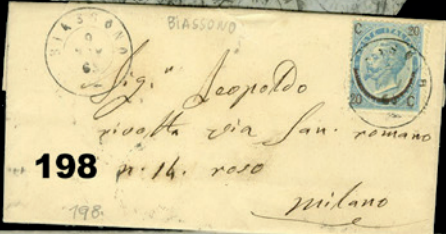 BIASSONO
BIASSONO
C 20
20 C
Sig.r Leopoldo
rivolta via San. romano
n. 14. roso
milano
198
198